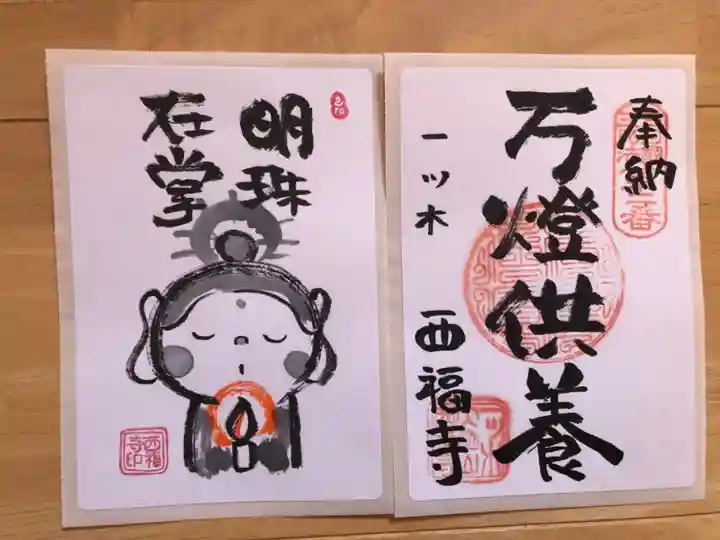 明珠
在掌
西福
寺印
奉納
万燈供養
一ツ木
西福寺